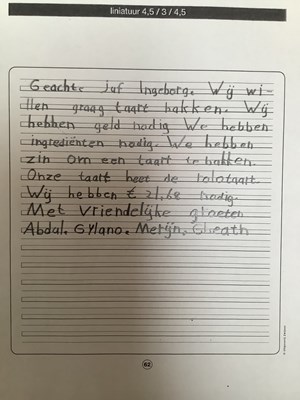 liniatuur 4,5 / 3 / 4,5
Geachte juf Ingeborg. Wij wi-
llen graag taart bakken. Wij
hebben geld nodig We hebben
ingrediënten nodig. We hebben
zin om een taart te bakken.
Onze taart heet de rolotaart.
Wij hebben € 21,68 nodig.
Met vriendelijke groeten
Abdal. Gylano. Merijn.
62